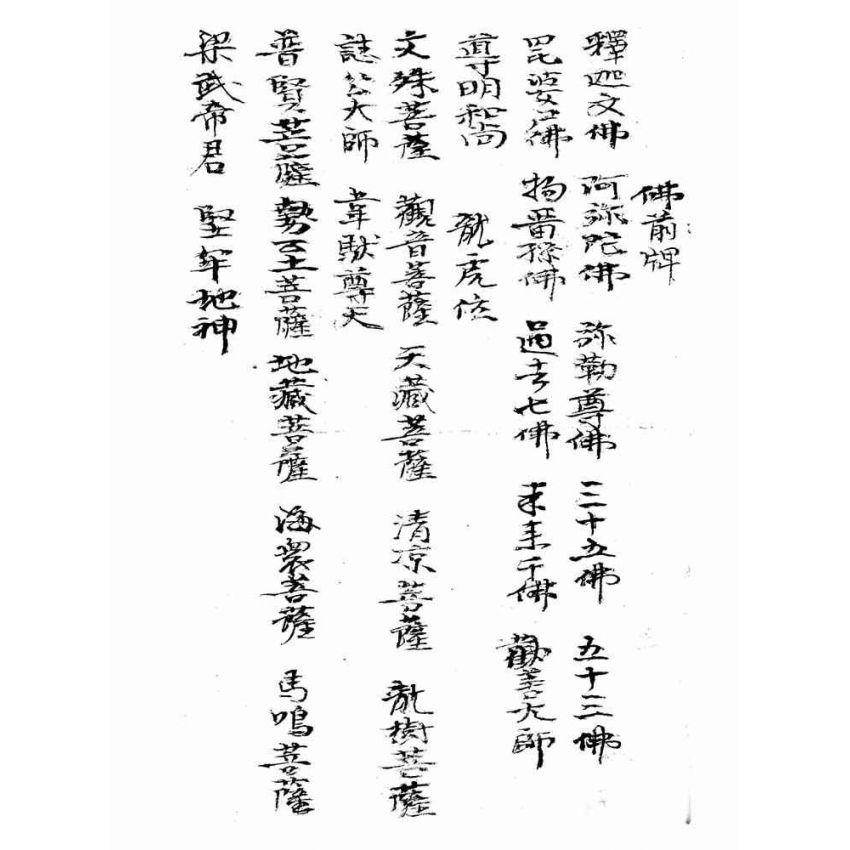 佛前牌
釋迦文佛 阿弥陀佛 弥勒尊佛 三十五佛 五十三佛
毘婆尸佛 拘畱孫佛 過去七佛 未来千佛 勸善大師
導明和尚 龍虎位
文殊菩薩 觀音菩薩 天藏菩薩 清凉菩薩 龍樹菩薩
誌公大師 韋馱尊天
普賢菩薩 勢至菩薩 地藏菩薩 海眾菩薩 馬鳴菩薩
梁武帝君 堅牢地神